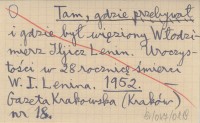 Tam, gdzie przebywał
i gdzie był więziony Włodzi-
mierz Iljicz Lenin. Uroczys-
tości w 28 rocznicę śmierci
W. I. Lenina. 1952.
Gazeta Krakowska (Kraków)
nr 18.